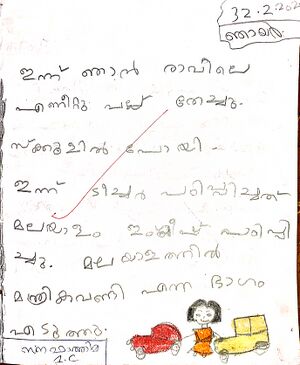 32.2.202
ഞായർ
ഇന്ന് ഞാൻ രാവിലെ
എണീറ്റു പല്ല് തേച്ചു.
സ്ക്കൂളിൽ പോയി
ഇന്ന് ടീച്ചർ പഠിപ്പിച്ചത്
മലയാളം ഇംഗ്ലീഷ് പഠിപ്പി
ച്ചു. മലയാളത്തിൽ
മന്ത്രികവണി എന്ന ഭാഗം
എടുത്തു.
2.C